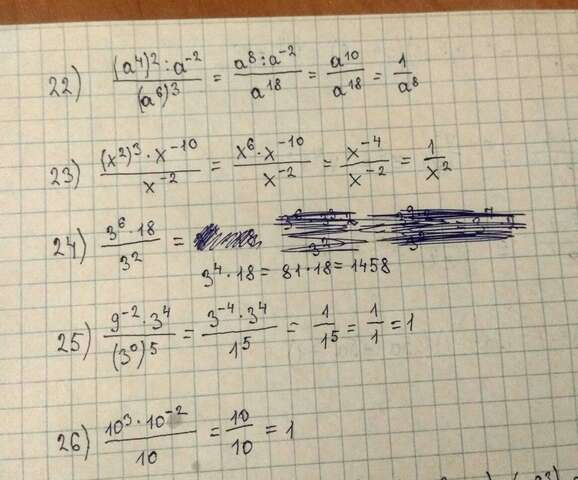 22) ((a⁴)² : a⁻²)/(a⁶)³ = (a⁸ : a⁻²)/a¹⁸ = a¹⁰/a¹⁸ = 1/a⁸
23) ((x²)³ · x⁻¹⁰)/x⁻² = (x⁶ · x⁻¹⁰)/x⁻² = x⁻⁴/x⁻² = 1/x²
24) (3⁶ · 18)/3² =
3⁴ · 18 = 81 · 18 = 1458
25) (9⁻² · 3⁴)/(3⁰)⁵ = (3⁻⁴ · 3⁴)/1⁵ = 1/1⁵ = 1/1 = 1
26) (10³ · 10⁻²)/10 = 10/10 = 1